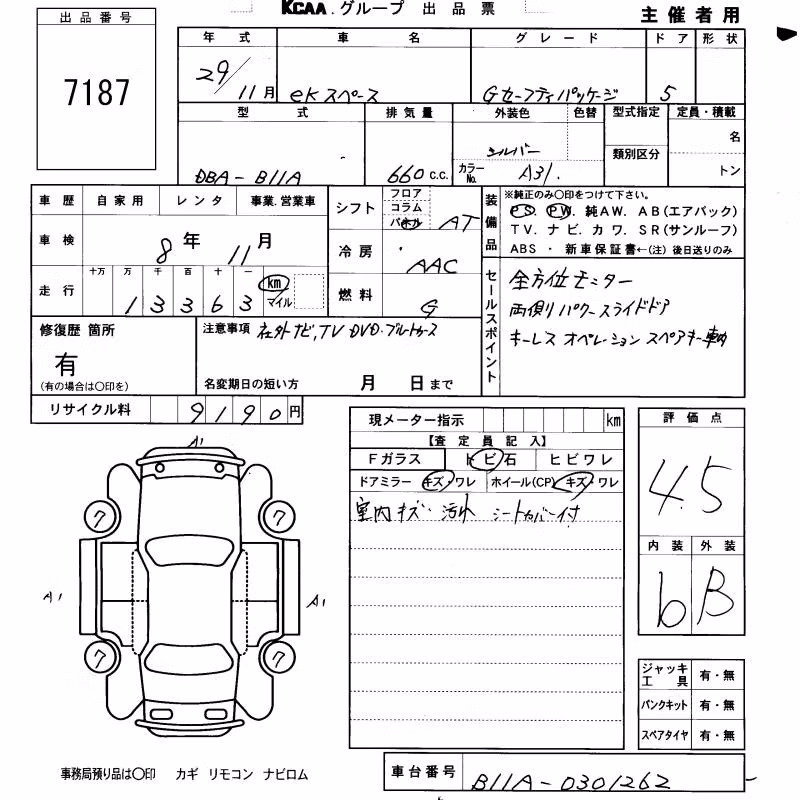 KCAA.グループ 出品票
主催者用
出品番号
7187
年式 車名 グレード ドア 形状
29/11月 eKスペース Gセーフティパッケージ 5
型式 排気量 外装色 色替 型式指定 定員・積載
シルバー 名
類別区分
DBA-B11A 660 c.c. カラーNo. A31. トン
車歴 自家用 レンタ 事業.営業車
シフト フロア コラム AT
車検 8年 11月
冷房 AAC
走行 十万 万 千 百 十 一 km マイル
1 3 3 6 3
燃料 G
装備品
※純正のみ○印をつけて下さい。
PS. PW. 純AW. AB(エアバック)
TV. ナビ. カワ. SR(サンルーフ)
ABS ・ 新車保証書←(注) 後日送りのみ
セールスポイント
全方位モニター
両側パワースライドドア
キーレスオペレーション スペアキー車内
修復歴 箇所
有
(有の場合は○印を)
注意事項 社外ナビ,TV DVD・ブルートゥース
名変期日の短い方 月 日まで
リサイクル料 9190円
現メーター指示 km
【査定員記入】
Fガラス トビ石 ヒビワレ
ドアミラー キズ・ワレ ホイール(CP) キズ・ワレ
室内キズ・汚れ シートカバー付
評価点
4.5
内装 外装
b B
A1
7 7
A1 A1
7 7
ジャッキ工具 有・無
パンクキット 有・無
スペアタイヤ 有・無
事務局預り品は○印 カギ リモコン ナビロム
車台番号 B11A-0301262